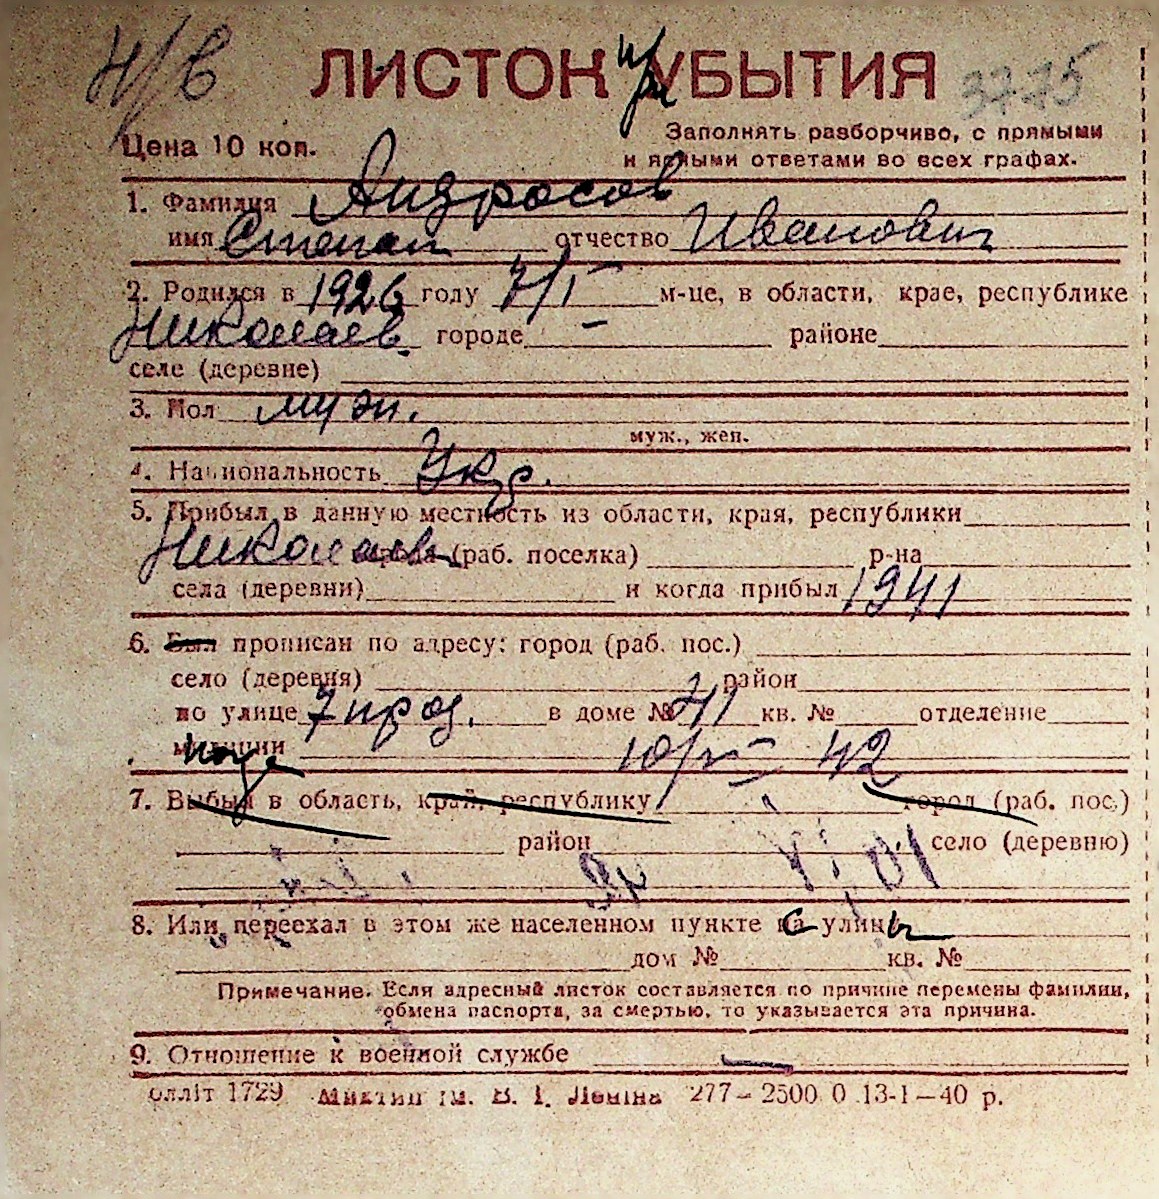 Н/В ЛИСТОК УБЫТИЯ 3775
Цена 10 коп.
Заполнять разборчиво, с прямыми
и ясными ответами во всех графах.
1. Фамилия Андросов
имя Степан отчество Иванович
2. Родился в 1926 году 7/I м-це, в области, крае, республике
Николаев. городе – районе
селе (деревне)
3. Пол муж.
муж., жен.
4. Национальность Укр.
5. Прибыл в данную местность из области, края, республики
Николаев города (раб. поселка) р-на
села (деревни) и когда прибыл 1941
6. Был прописан по адресу: город (раб. пос.)
село (деревня) район
по улице 7 прод. в доме № 41 кв. № отделение
милиции 42
7. Выбыл в область, край, республику город (раб. пос.)
район село (деревню)
8. Или переехал в этом же населенном пункте с улицы
дом № кв. №
Примечание. Если адресный листок составляется по причине перемены фамилии,
обмена паспорта, за смертью, то указывается эта причина.
9. Отношение к военной службе —
олліт 1729 В. І. Леніна 277–2500 0 13-1–40 р.